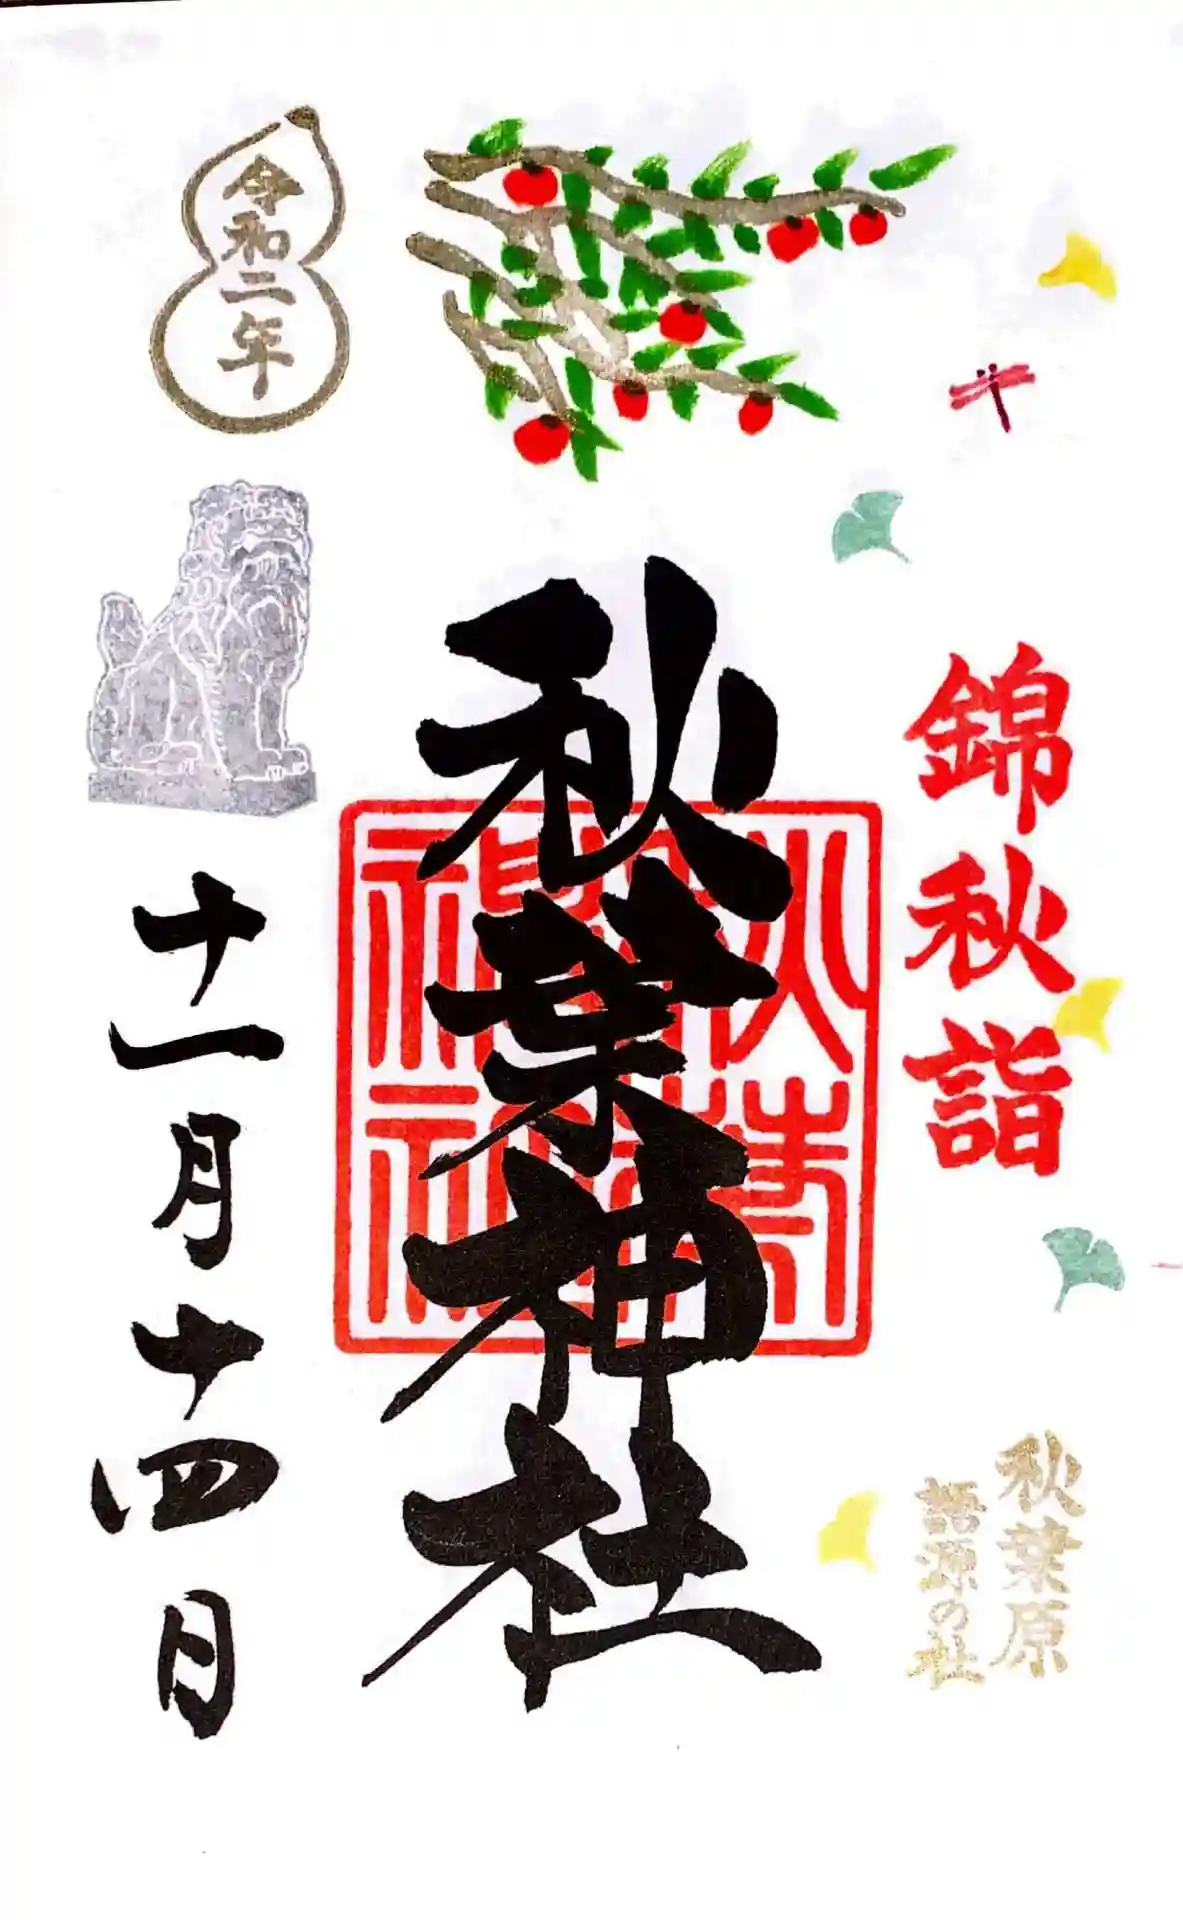 錦秋詣
秋葉原
語源の社
秋葉神社
令和二年
十一月十四日